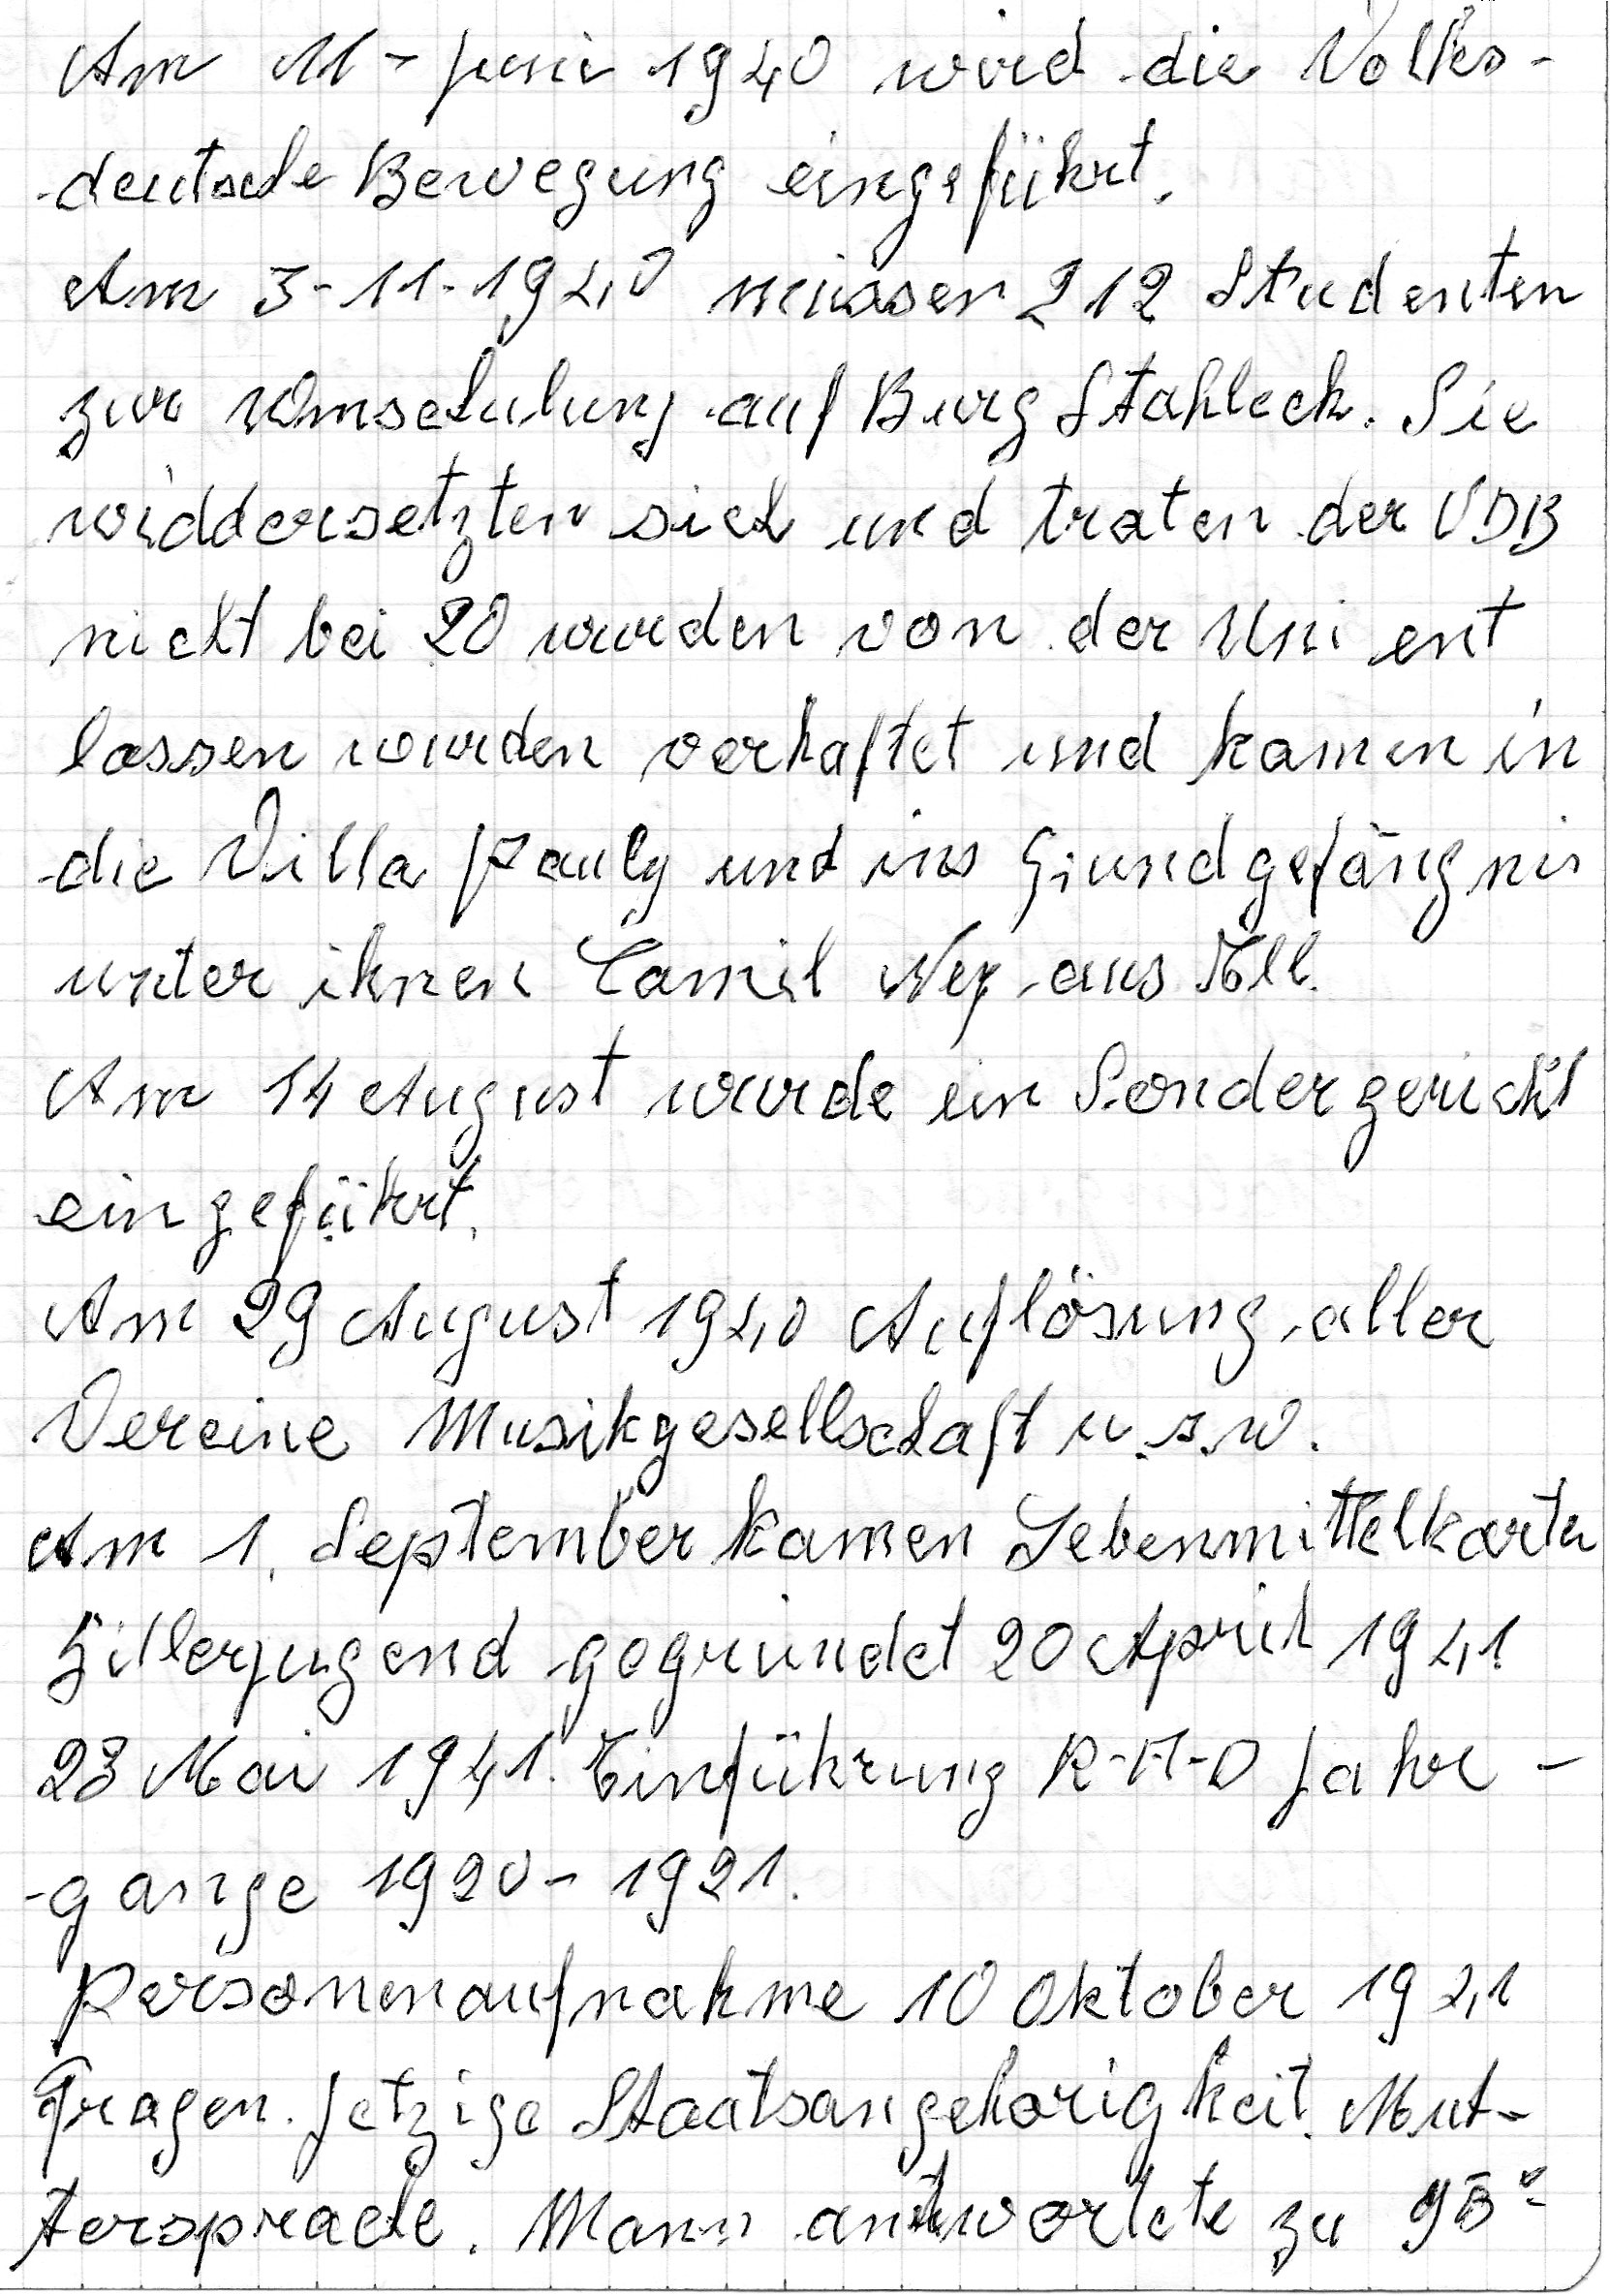 Am 11 - Juni 1940 wird die Volks-
deutsche Bewegung eingeführt.
Am 3-11-1940 müssen 212 Studenten
zur Umschulung auf Burg Stahleck. Sie
widdersetzten sich und traten der VDB
nicht bei 20 wurden von der Uni ent
lassen wurden verhaftet und kamen in
die Villa Pauly und ins Grundgefängnis
unter ihnen Camil Ney aus
Am 14 August wurde ein Sondergericht
eingeführt.
Am 29 August 1940 Auflösung aller
Vereine Musikgesellschaft u.s.w.
Am 1. September kamen Lebenmittelkarten
Hitlerjugend gegründet 20 April 1941
23 Mai 1941. Einführung R-A-D Jahr-
-gange 1920 - 1921.
Personenaufnahme 10 Oktober 1941
Fragen. Jetzige Staatsangehorigkeit. Mut-
tersprache. Mann antwortete zu